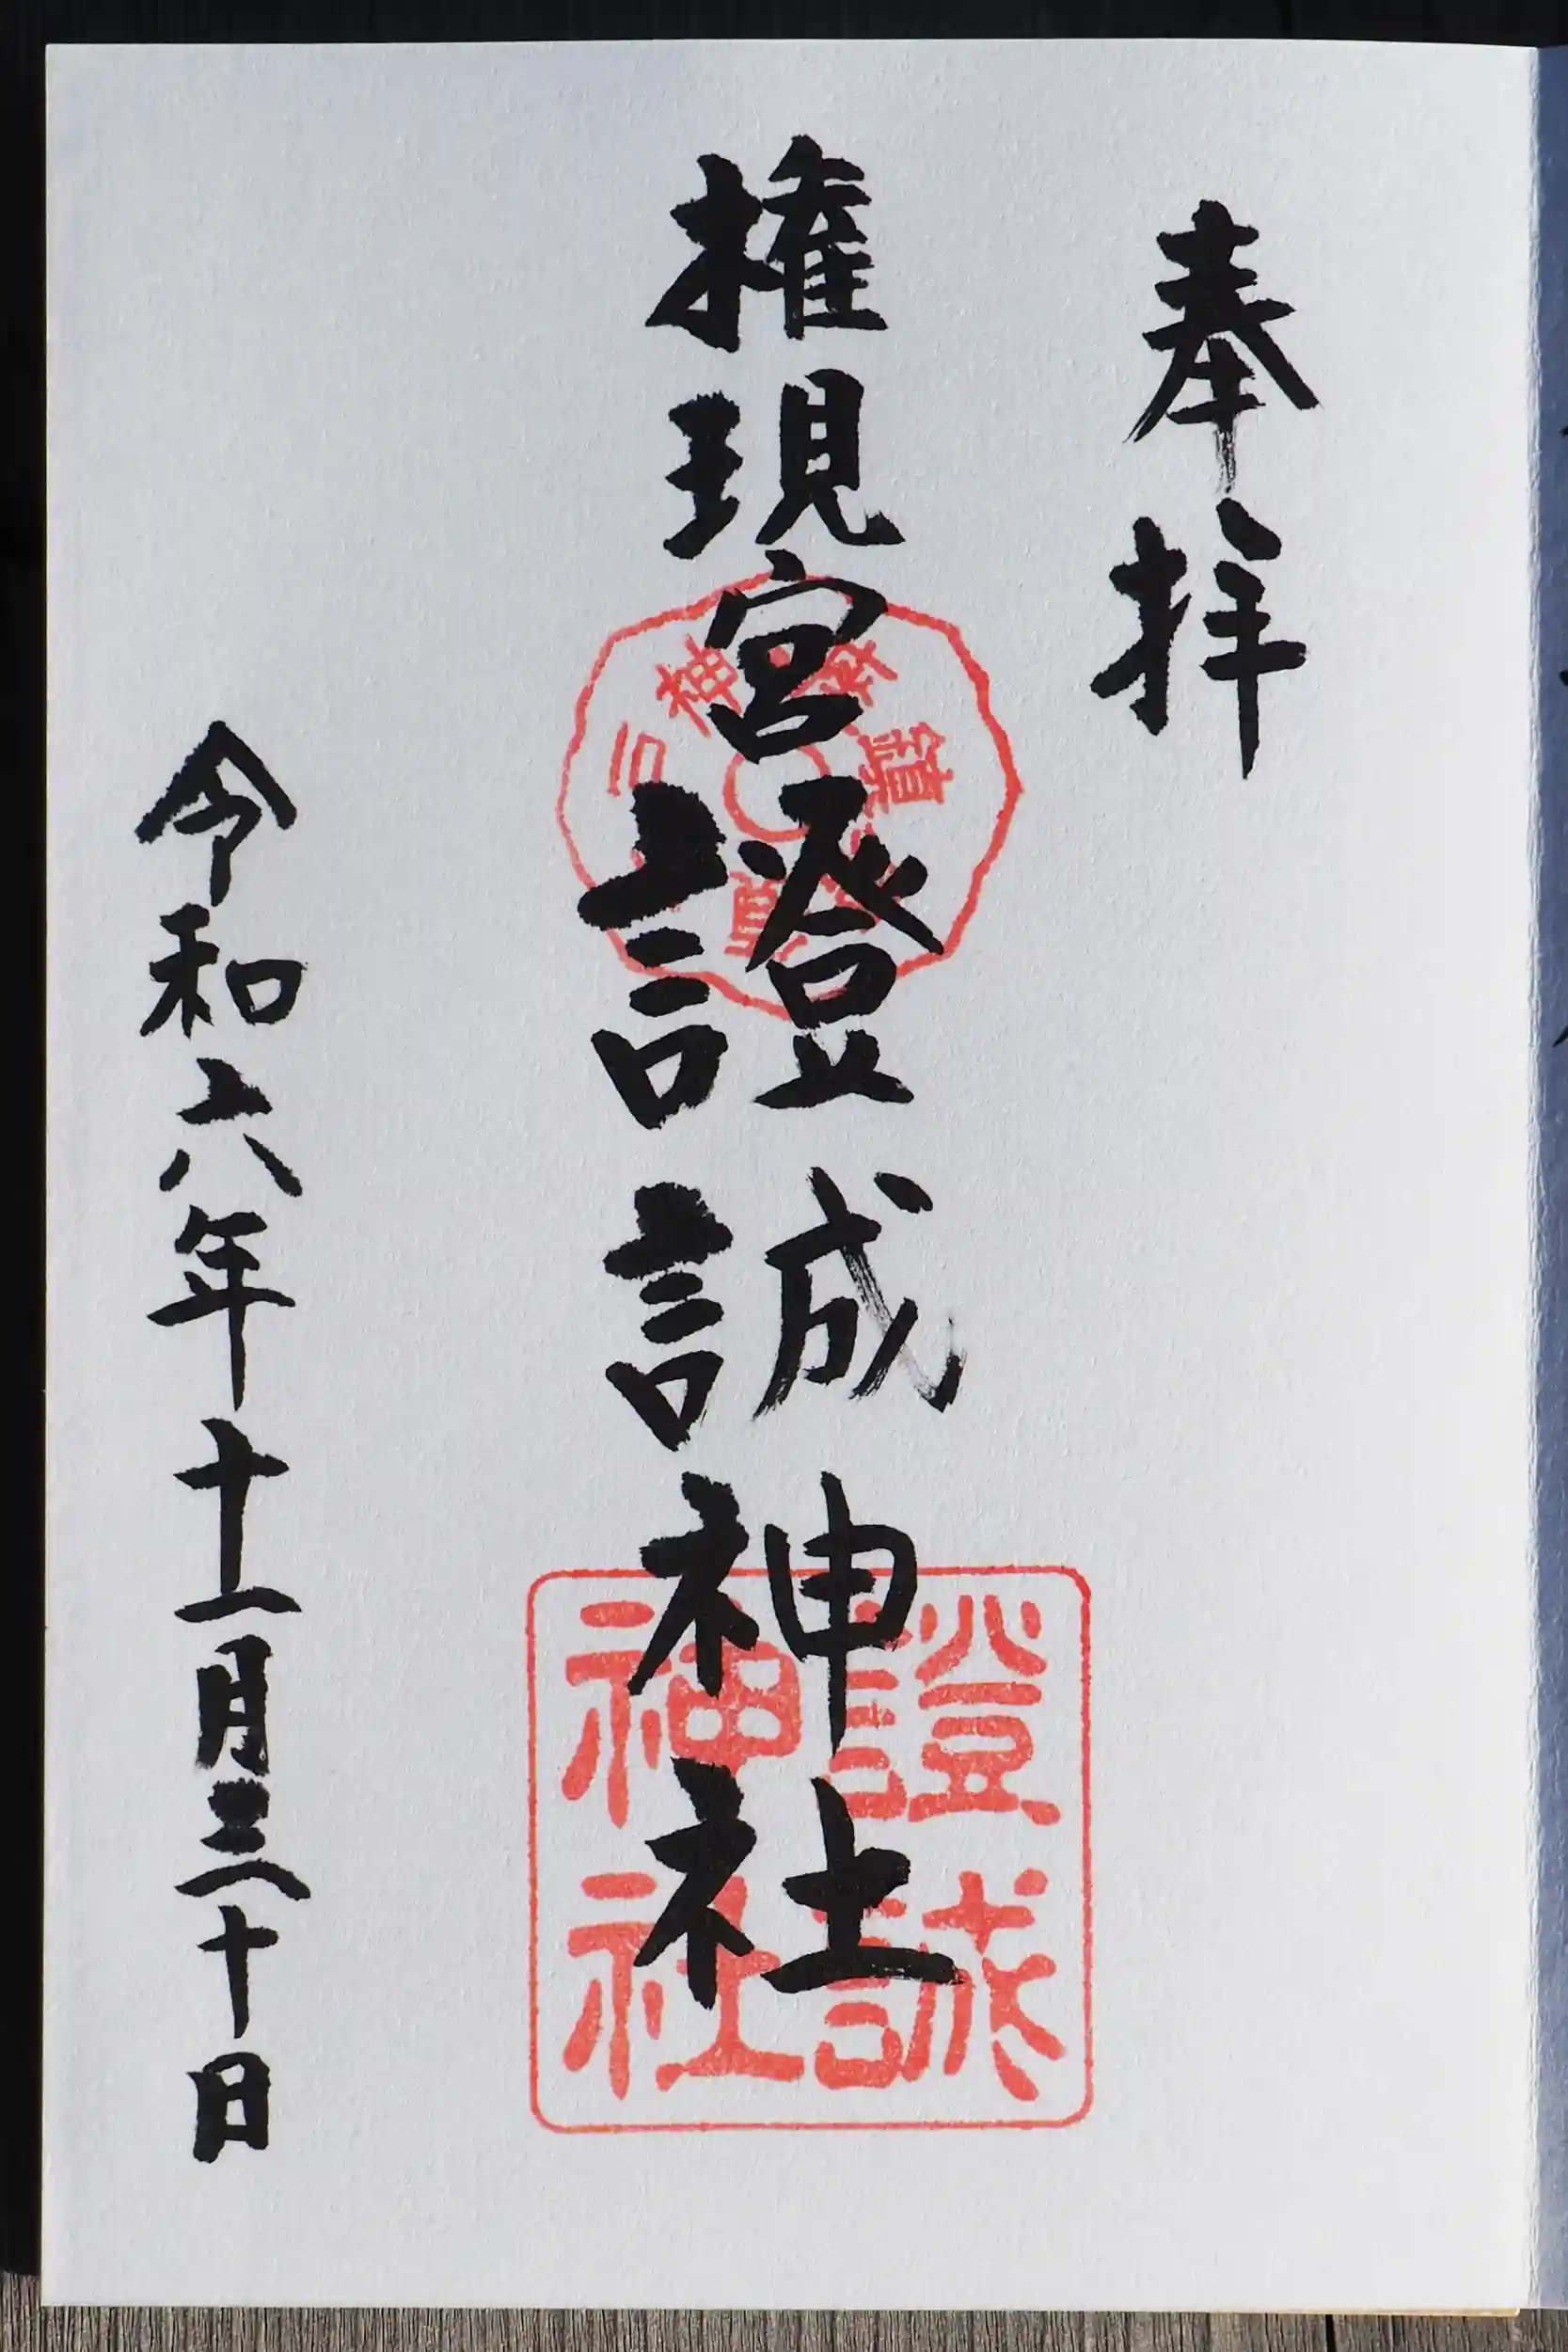 奉拝
権現宮證誠神社
令和六年十一月三十日
證誠
神社